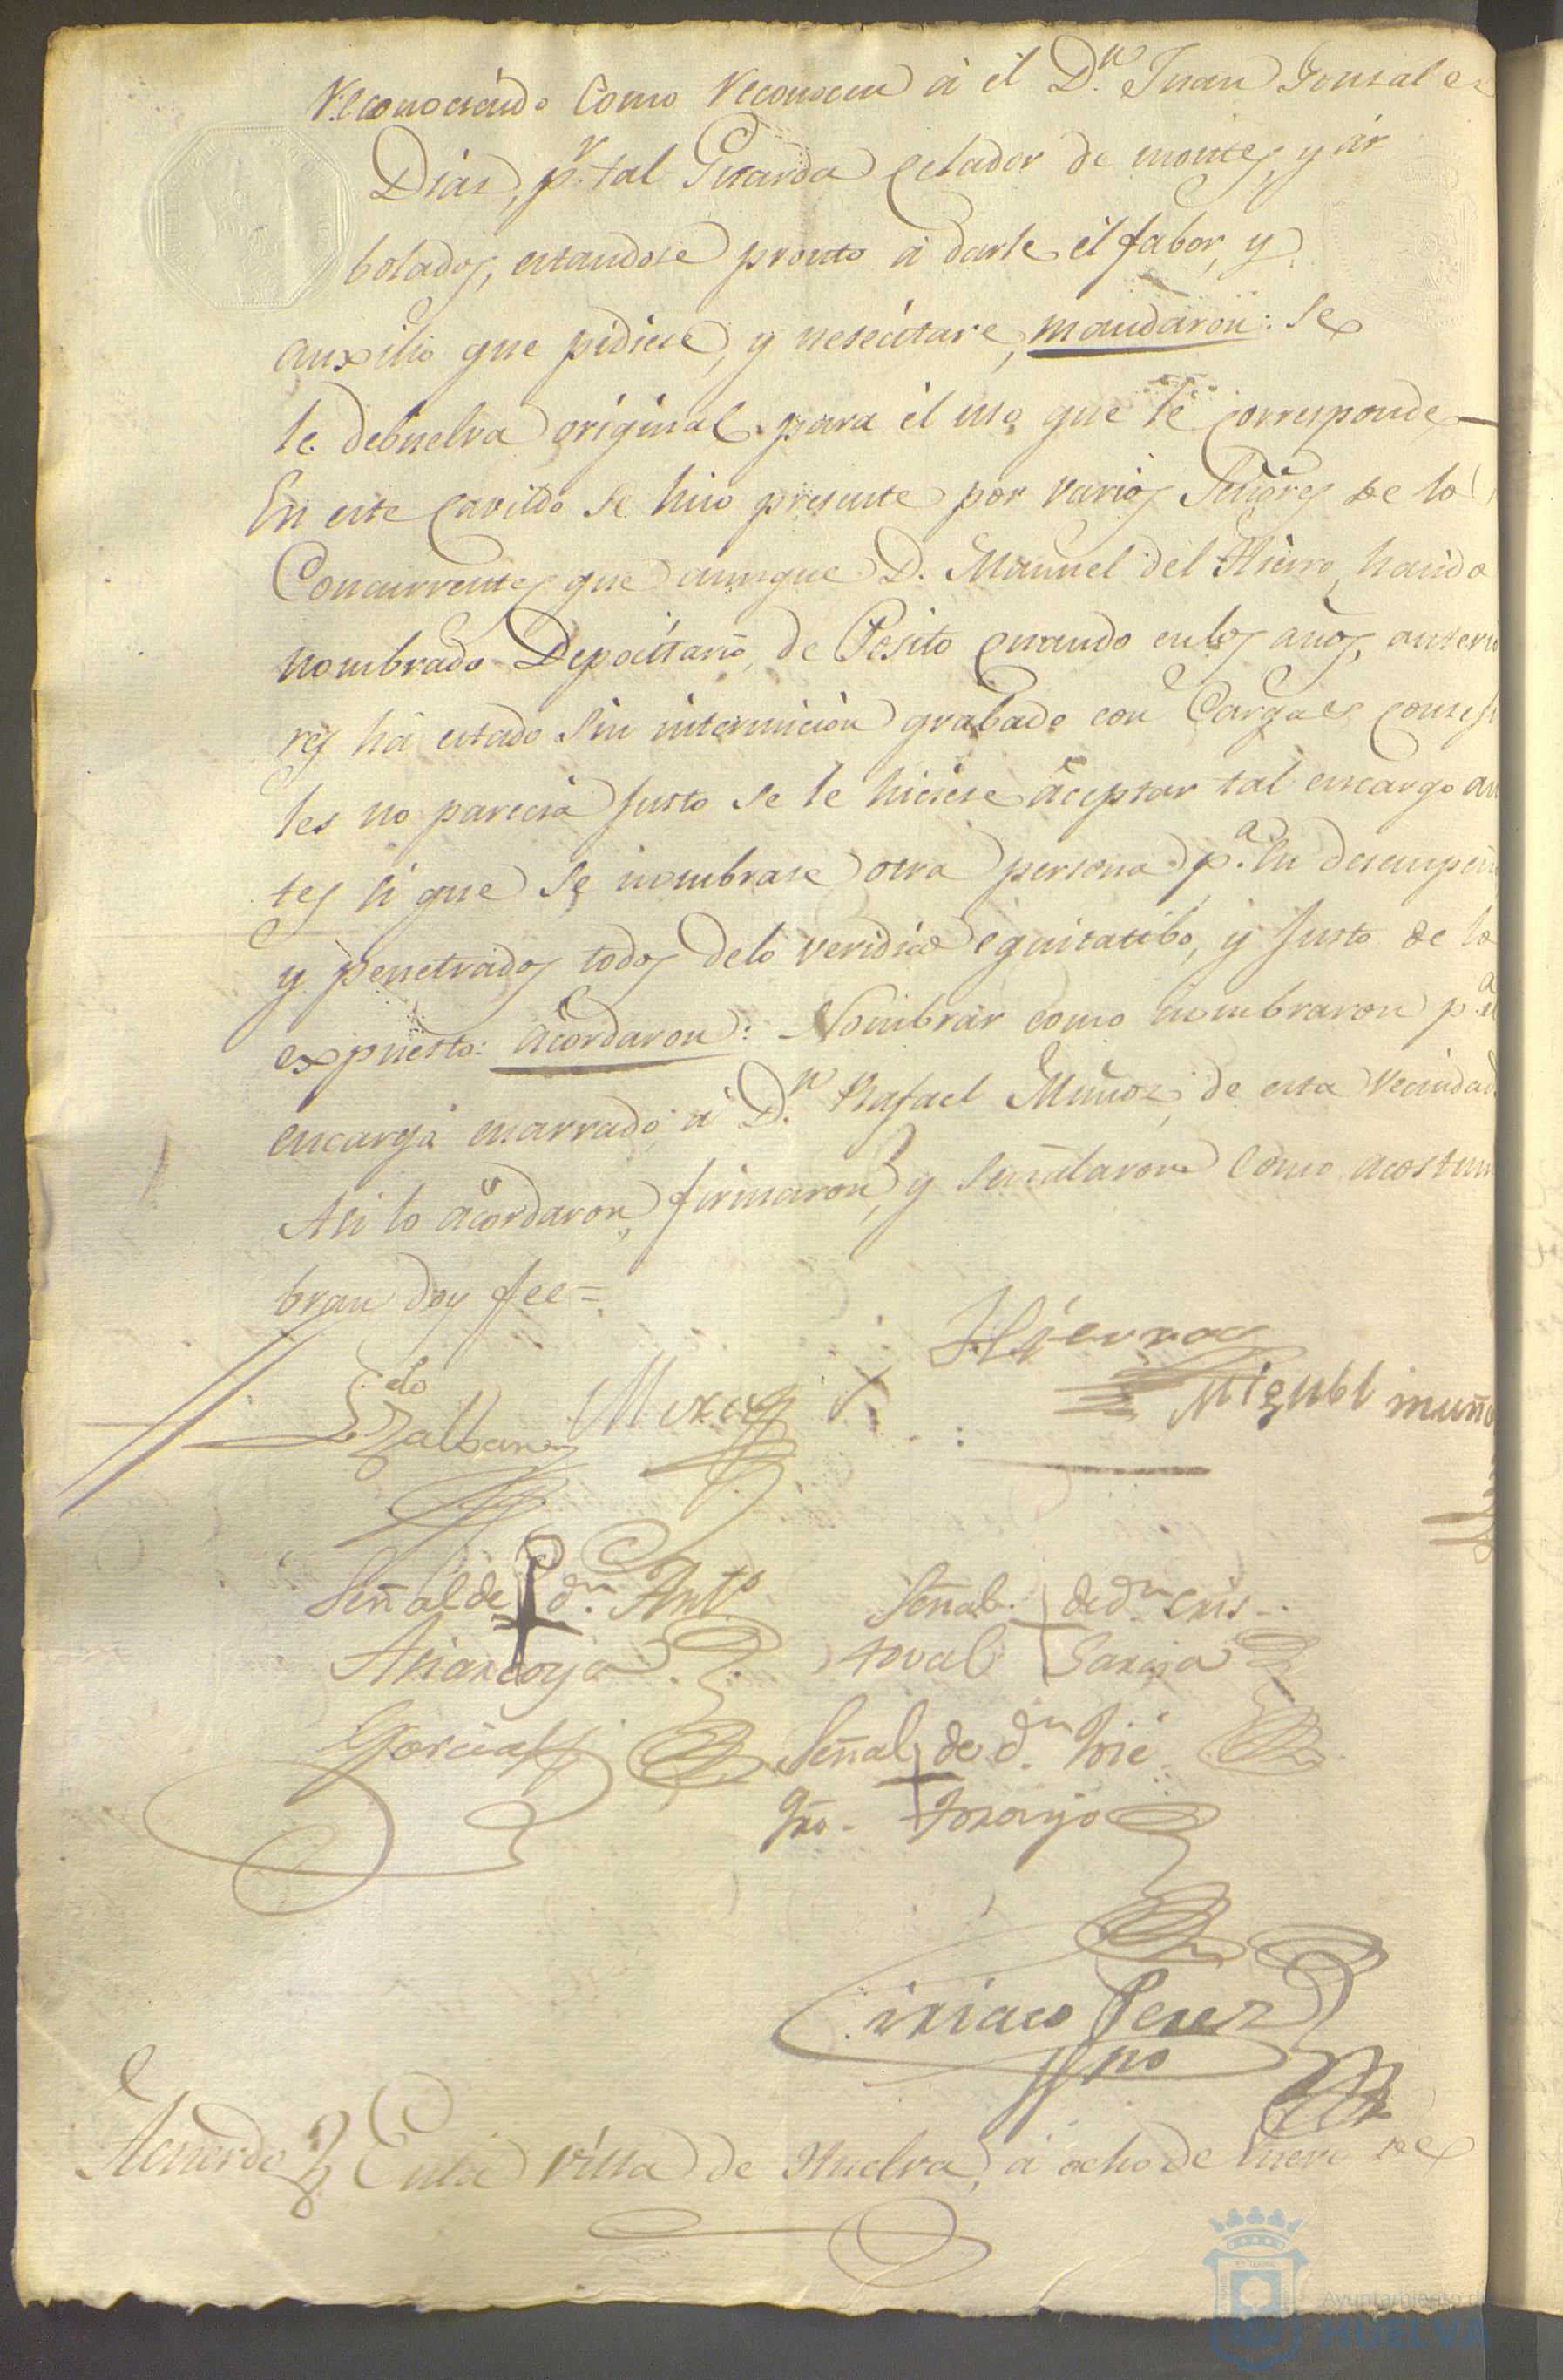 Reconociendo como reconocen á él D.n Juan Gonzalez
Diaz, p.r tal Guarda Celador de montes, y ar
bolados, estandose pronto á darle el fabor, y
auxilio que pidiese, y nesecitare, mandaron: Se
le debuelva original para el uso que le corresponde
En este Cavildo se hizo presente por varios Señores de lo
Concurrentes que aunque D. Manuel del Hierro, haido
nombrado Depocitario de Posito quando en los años anterio
res há estado sin intermicion grabado con Cargas conseji
les no parecia justo se le hiciese aceptar tal encargo an
tes si que se nombrase otra persona p.a su desempeñ
y penetrados todos de lo veridico equitatibo, y justo de lo
expuesto: acordaron: Nombrar como nombraron p.a el
encargo enarrado, á D.n Rafael Muñoz, de esta Vecindad
Asi lo acordaron, firmaron, y señalaron como acostum
bran doy fee=
Hierro
Miguel muño
Señal de d.n Ant.o
Señal de d.n Cris-
toval Garcia
Garcia
Señal de d.n José
Ciriaco Perez
Acuerdo En la villa de Huelva, á ocho de Enero de
Ayuntamiento de
HUELVA